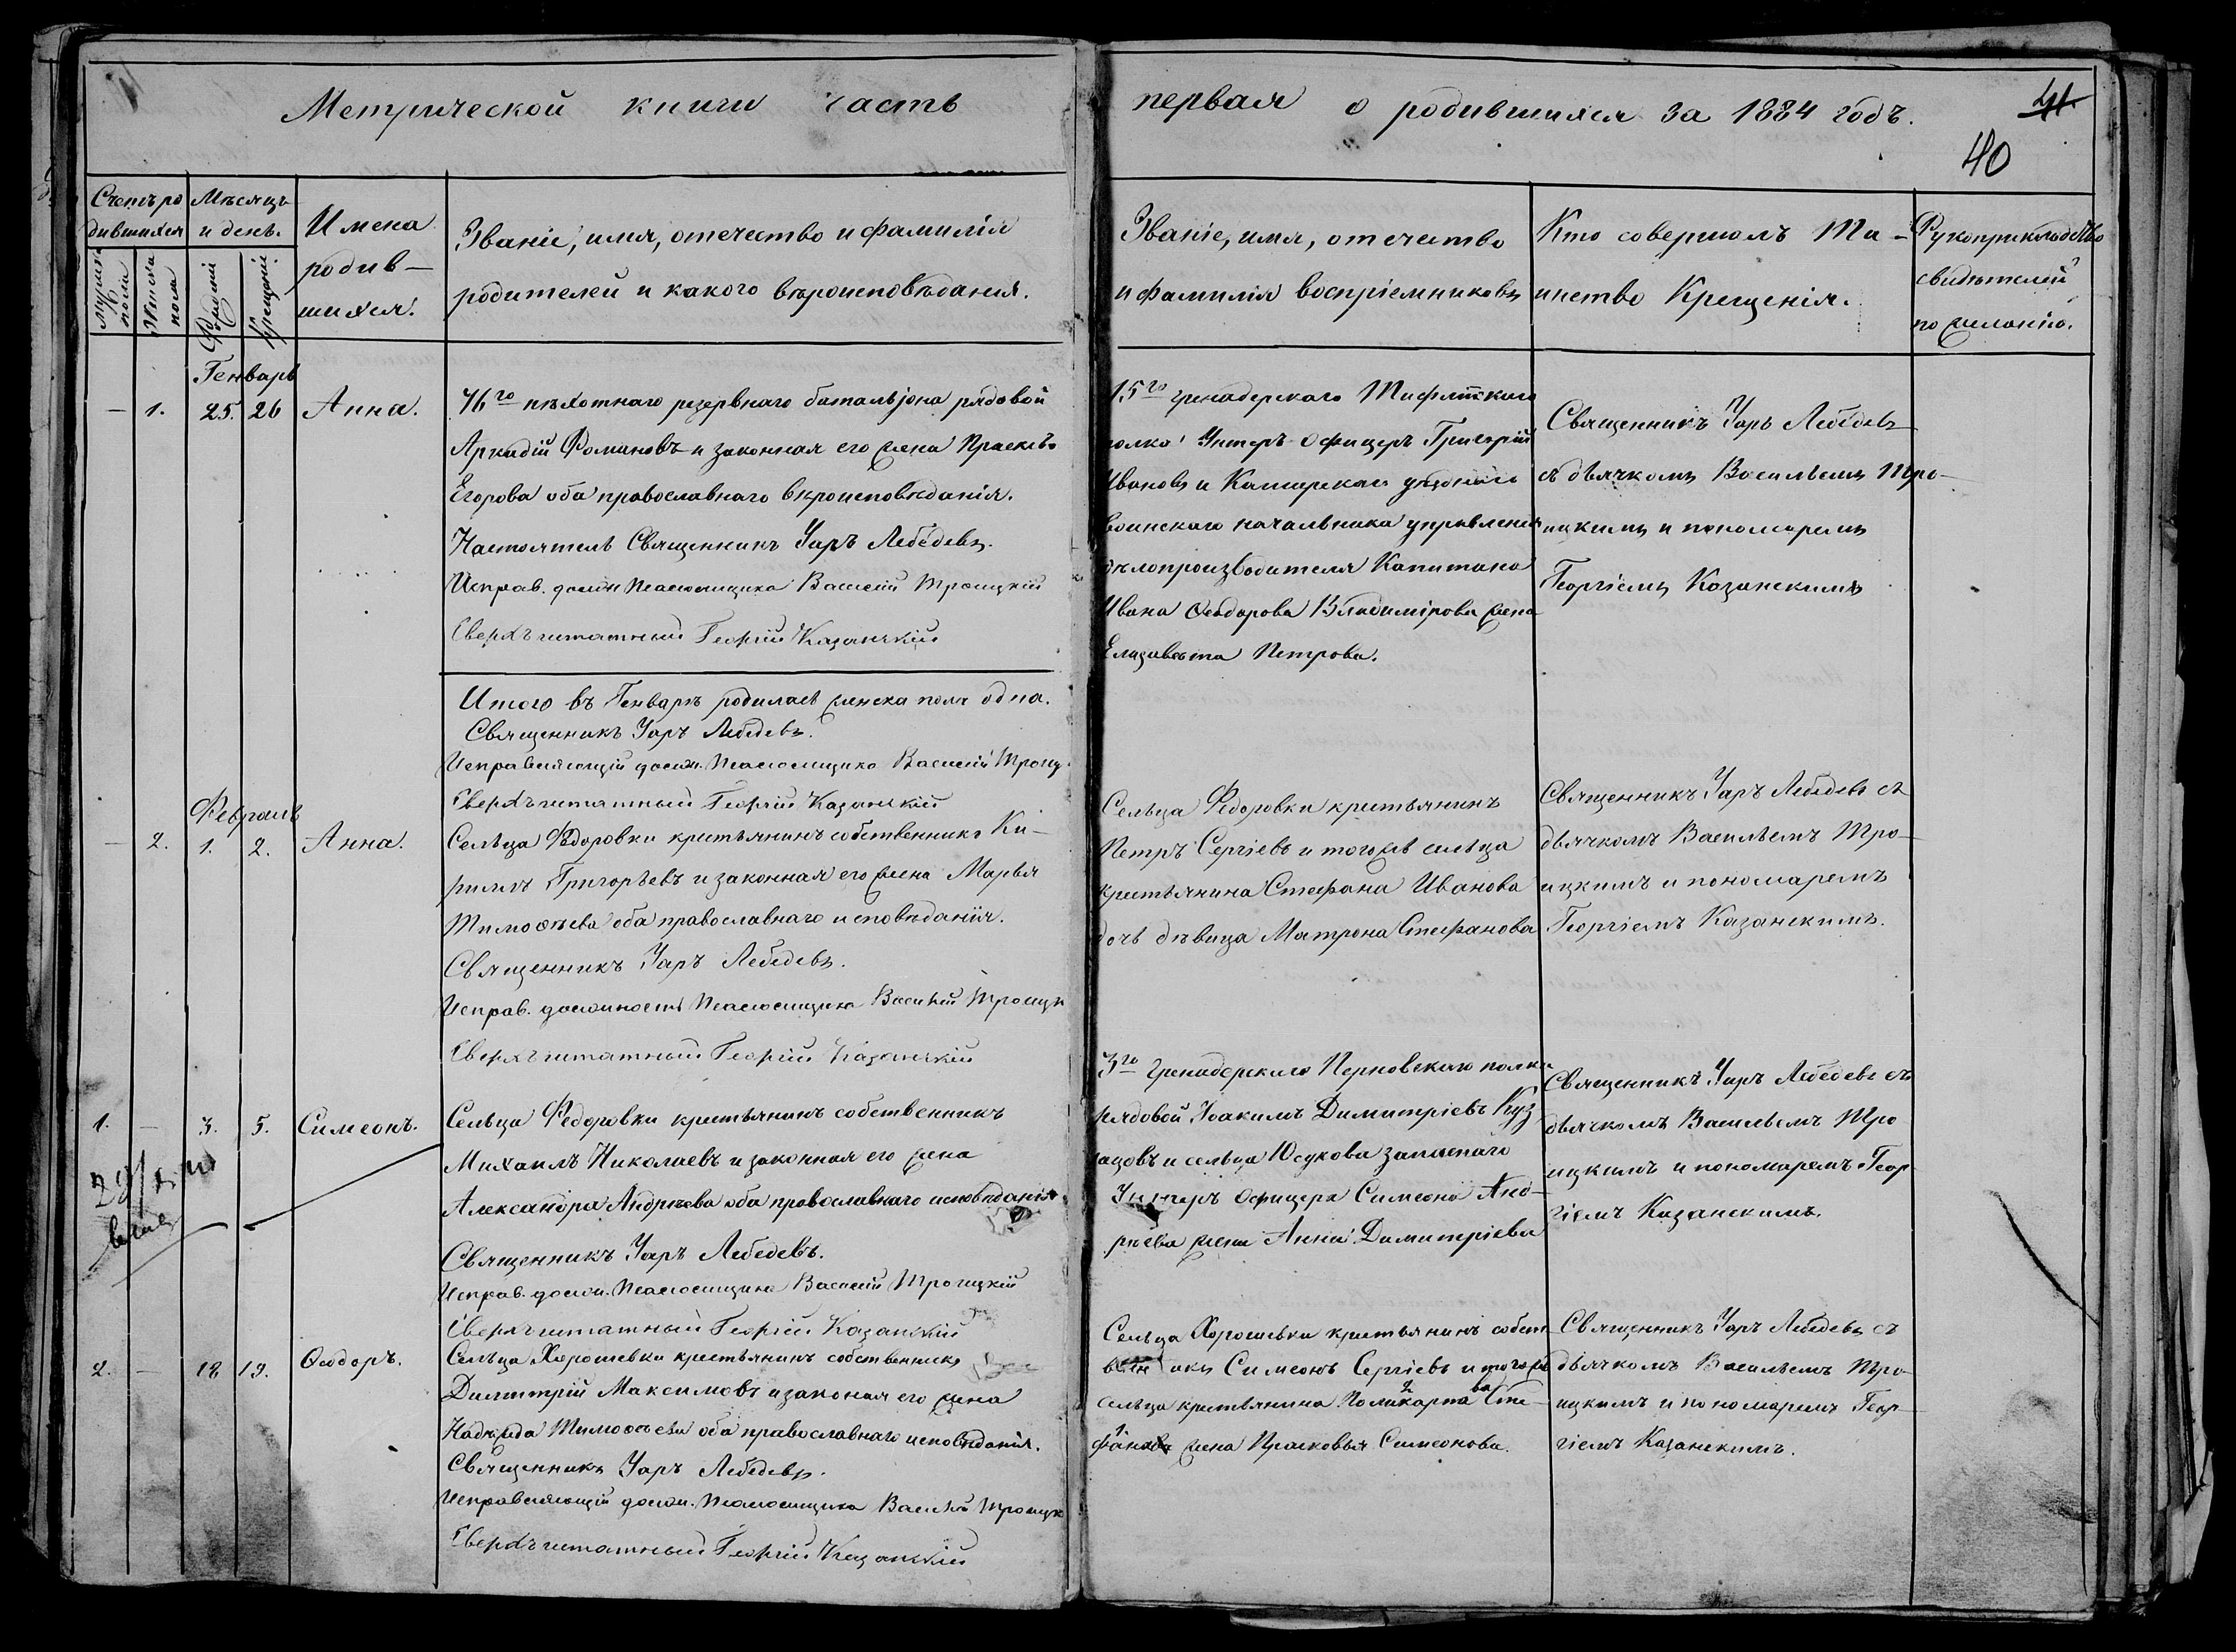 Метрической книги часть
первая о родившихся за 1884 годъ.
40
Счетъ ро
дившихся
Мѣсяцъ
и день.
Имена
родив-
шихся.
Званіе, имя, отечество и фамилія
родителей и какого вѣроисповѣданія.
Мужска
пола
Женска
пола
Рожденія
Крещенія
Званіе, имя, отечество
и фамилія воспріемниковъ
Кто совершалъ Та-
инство Крещенія.
Рукоприкладство
свидѣтелей
по желанію.
Генварь
— 1. 25. 26 Анна.
76го пѣхотнаго резервнаго баталіона рядовой
Аркадій Фомановъ и законная его жена Прасковья
Егорова оба православнаго вѣроисповѣданія.
Настоятель Священникъ Уаръ Лебедевъ.
Исправ. должн. Псаломщика Василій Троицкій
Сверхъштатный Георгій Казанскій
15го гренадерскаго Тифлисскаго
полка Унтеръ-Офицеръ Григорій
Ивановъ и Каширскаго уѣзднаго
воинскаго начальника управленія
дѣлопроизводителя Капитана
Ивана Ѳеодорова Владимірова жена
Елизавета Петрова.
Священникъ Уаръ Лебедевъ
съ дьячкомъ Васильемъ Тро-
ицкимъ и пономаремъ
Георгіемъ Казанскимъ
Итого въ Генварѣ родилась женска пола одна.
Священникъ Уаръ Лебедевъ.
Исправляющій должн. Псаломщика Василій Троиц.
Сверхъштатный Георгій Казанскій
Февраль
— 2. 1. 2. Анна.
Сельца Ѳедоровки крестьянинъ собственникъ Ки-
риллъ Григорьевъ и законная его жена Марья
Тимоѳѣева оба православнаго исповѣданія.
Священникъ Уаръ Лебедевъ.
Исправ. должность Псаломщика Василій Троицк
Сверхъштатный Георгій Казанскій
Сельца Ѳедоровки крестьянинъ
Петръ Сергіевъ и тогожъ сельца
крестьянина Стефана Иванова
дочь дѣвица Матрона Стефанова
Священникъ Уаръ Лебедевъ съ
дьячкомъ Васильемъ Тро-
ицкимъ и пономаремъ
Георгіемъ Казанскимъ.
1. — 3. 5. Симеонъ.
Сельца Ѳедоровки крестьянинъ собственникъ
Михаилъ Николаевъ и законная его жена
Александра Андреева оба православнаго исповѣданія
Священникъ Уаръ Лебедевъ.
Исправ. должн. Псаломщика Василій Троицкій
Сверхъштатный Георгій Казанскій
3го Гренадерскаго Перновскаго полка
рядовой Іоакимъ Димитріевъ Куз
нацовъ и сельца Юсукова запаснаго
Унтеръ Офицера Симеона Анд-
рѣева жена Анна Димитріева
Священникъ Уаръ Лебедевъ съ
дьячкомъ Васильемъ Тро
ицкимъ и пономаремъ Геор
гіемъ Казанскимъ.
2. — 18 19. Ѳеодоръ.
Сельца Хорошевки крестьянинъ собственникъ
Димитрій Максимовъ и законая его жена
Надежда Тимоѳѣева оба православнаго исповѣданія.
Священникъ Уаръ Лебедевъ.
Исправляющій должн. Псаломщика Василій Троицк
Сверхъштатный Георгій Казанскій
Сельца Хорошевки крестьянинъ собст-
венникъ Симеонъ Сергіевъ и тогожъ
сельца крестьянина Поликарпа Сте-
фанова жена Прасковья Симеонова.
Священникъ Уаръ Лебедевъ съ
дьячкомъ Васильемъ Тро-
ицкимъ и пономаремъ Геор-
гіемъ Казанскимъ.